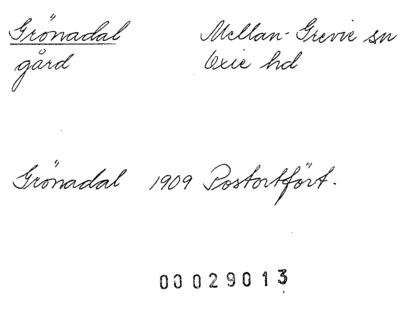 Grönadal Mellan-Grevie sn
gård Oxie hd
Grönadal 1909 Postortfört.
00029013